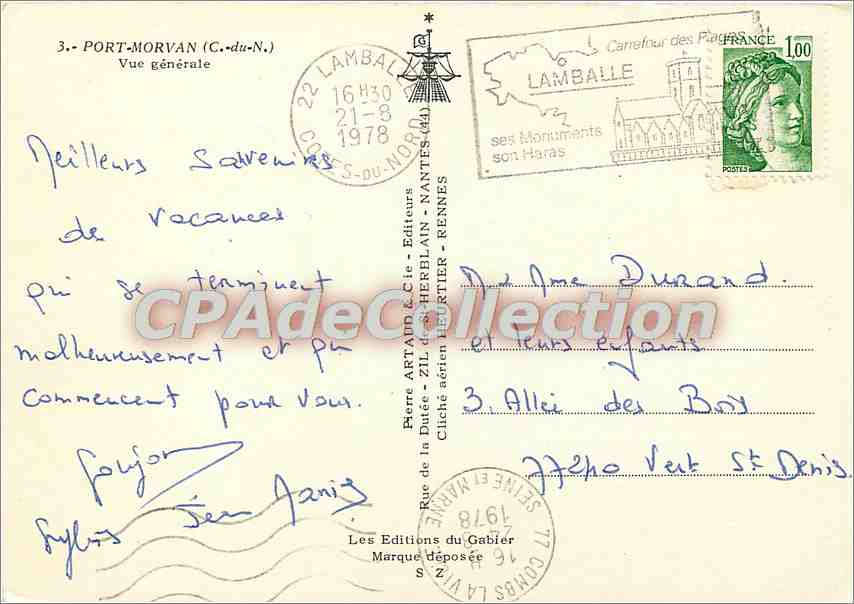 3.- PORT-MORVAN (C.-du-N.)
Vue générale
22 LAMBALLE
16H30
21-8
1978
COTES-DU-NORD
Carrefour des Plages
LAMBALLE
ses Monuments
son Haras
FRANCE
1,00
POSTES
Meilleurs Souvenirs
de vacances
qui se terminent
malheureusement et qui
commencent pour vous.
Goujon
Sylvie Jean Marie
Pierre ARTAUD & Cie - Editeurs
Rue de la Dutée - ZIL de St-HERBLAIN - NANTES (44)
Cliché aérien HEURTIER - RENNES
M & Mme Durand.
et leurs enfants
3. Allée des Bois
77240 Vert St Denis
CPAdeCollection
77 COMBS LA VI
16 H
1978
SEINE ET MARNE
Les Editions du Gabier
Marque déposée
S Z